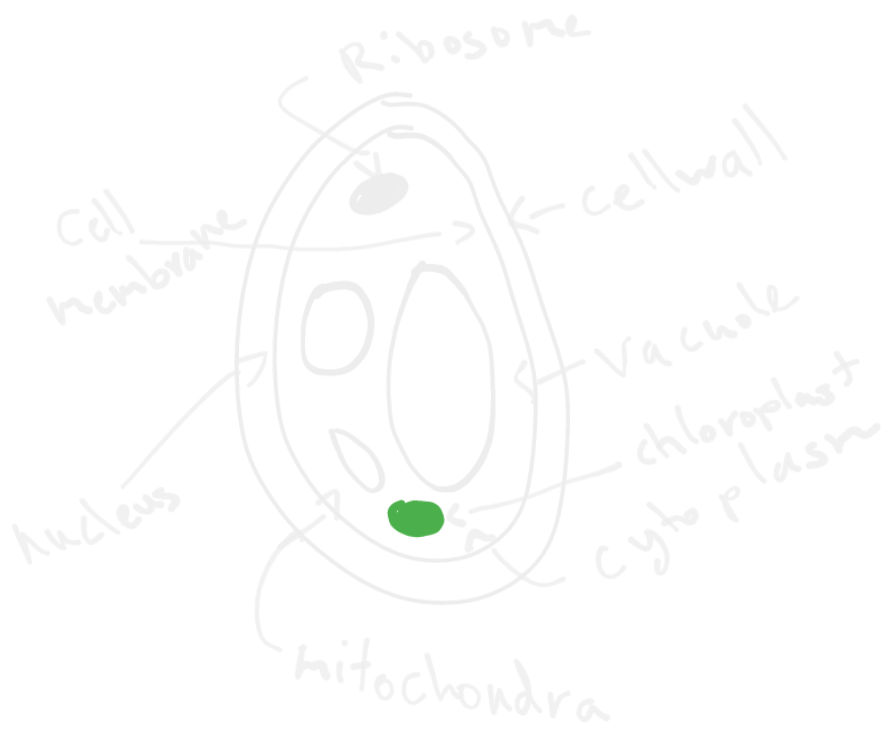 Ribosome
cellwall
Cell
membrane
Vacuole
chloroplast
cytoplasm
nucleus
mitochondra